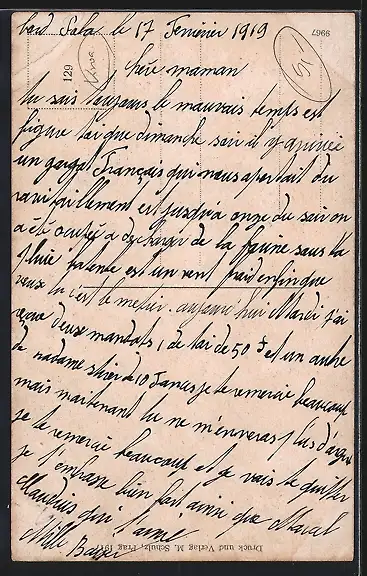 bord Sala le 17 Fevrier 1919
9967
129
chère maman
tu sais toujours le mauvais temps est
figure toi que dimanche soir il y arrivée
un Français qui nous aportait du
ravitaillement et jusqu'a onze du soir on
a été ocupée a décharger de la farine sous la
Pluie batente est un vent froid enfin que
veux tu c'est le métier. aujour hui Mardi j'ai
reçue deux mandats 1 de toi de 50 f et un autre
de madame de 10 Francs je te remercie beaucoup
mais maintenant tu ne m'enveras plus d'argent
je te remercie beaucoup et je vais te quitter
je t'embrasse bien fort ainsi que Marcel
qui t'aime
Mille Baiser
Druck und Verlag M. Schulz, Prag 191